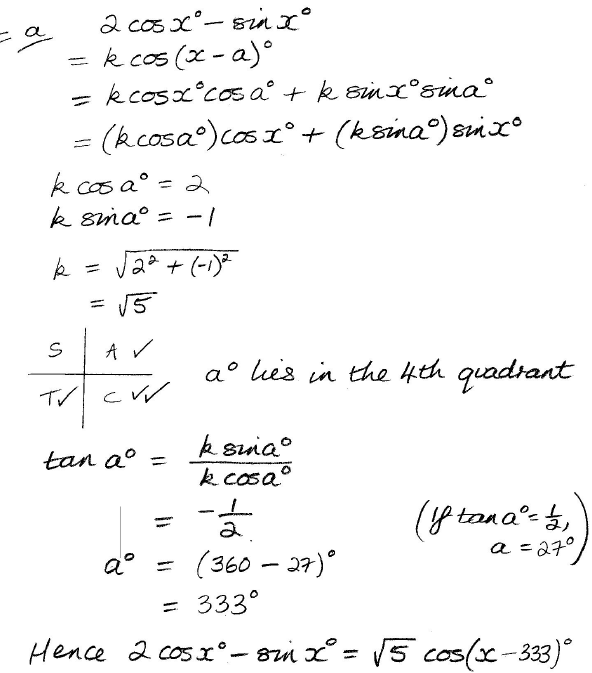 = a 2 cos x° − sin x°
= k cos (x − a)°
= k cos x° cos a° + k sin x° sin a°
= (k cos a°) cos x° + (k sin a°) sin x°
k cos a° = 2
k sin a° = −1
k = √(2² + (−1)²)
= √5
S | A ✓
T✓ | C ✓✓
a° lies in the 4th quadrant
tan a° = k sin a° / k cos a°
= −1/2
(If tan a° = 1/2,
a = 27°)
a° = (360 − 27)°
= 333°
Hence 2 cos x° − sin x° = √5 cos(x − 333)°